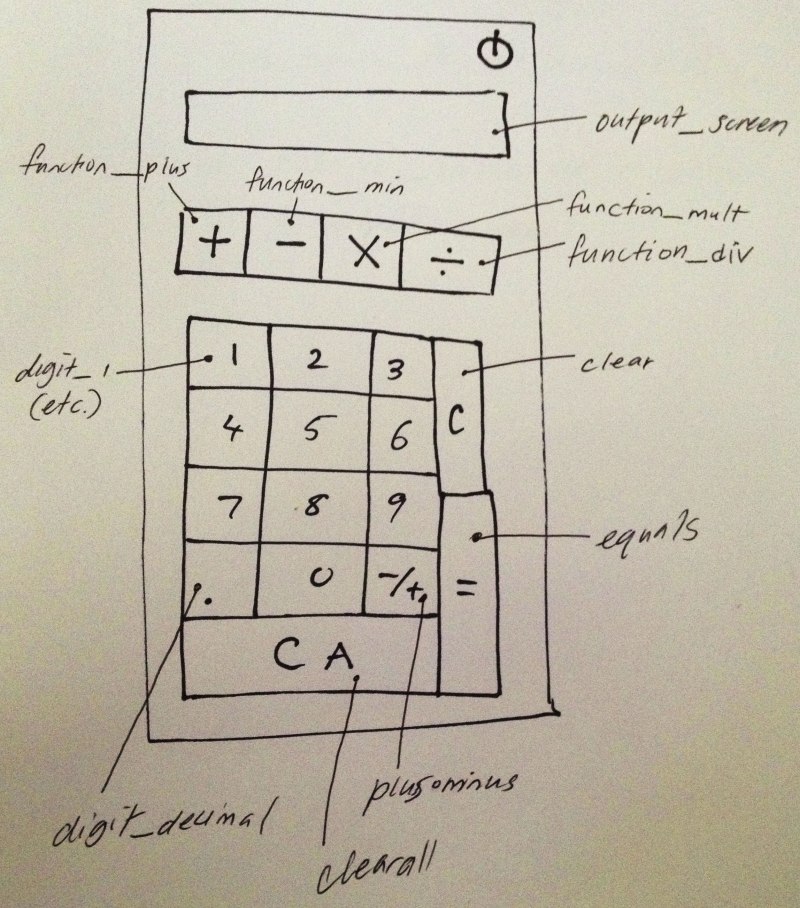 output_screen
function_plus
function_min
function_mult
+ - X ÷
function_div
digit_1
(etc.)
1 2 3
clear
4 5 6 C
7 8 9
equals
. 0 -/+ =
C A
plusominus
digit_decimal
clearall